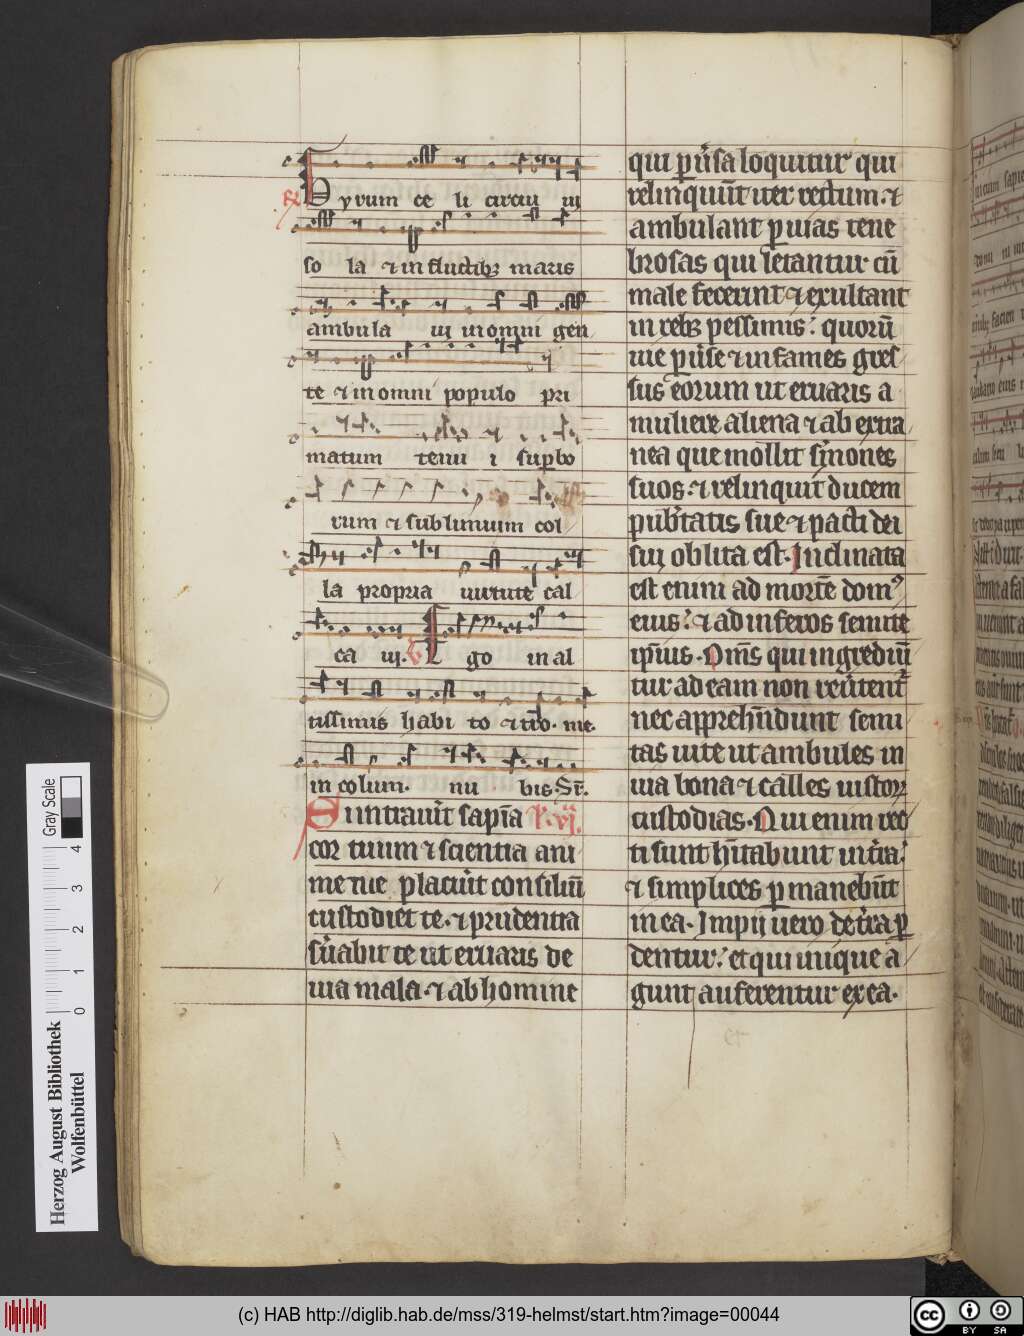 R Gyrum ce li circui ui
so la et in fluctibꝫ maris
ambula ui in omni gen
te et in omni populo pri
matum tenu i suꝑbo
rum et sublimium col
la propria uirtute cal
ca ui. V Ego in al
tissimis habi to et tro. me.
in colum. nu bis. Sr.
Si intrauit sapia l. vi.
cor tuum et scientia ani
me tue placuit consiliū
custodiet te. et prudentia
suabit te ut eruaris de
uia mala. et ab homine
qui ꝑuersa loquitur qui
relinquūt iter rectum. et
ambulant ꝑ uias tene
brosas qui letantur cū
male fecerint et exultant
in rebꝫ pessimis: quorū
uie ꝑuerse et infames gres
sus eorum ut eruaris a
muliere aliena et ab extra
nea que mollit smones
suos. et relinquit ducem
pubtatis sue et pacti dei
sui oblita est. Inclinata
est enim ad mortē domꝰ
eius: et ad inferos semite
ipius. Oms qui ingrediū
tur ad eam non reutent
nec apprehendunt semi
tas uite ut ambules in
uia bona et calles iustoꝝ
custodias. Qui enim rec
ti sunt habitabunt in tra:
et simplices ꝑmanebūt
in ea. Impii uero de tra ꝑ
dentur: et qui inique a
gunt auferentur ex ea.
Gray Scale
4 3 2 1 0
Herzog August Bibliothek
Wolfenbüttel
(c) HAB http://diglib.hab.de/mss/319-helmst/start.htm?image=00044
cc BY SA